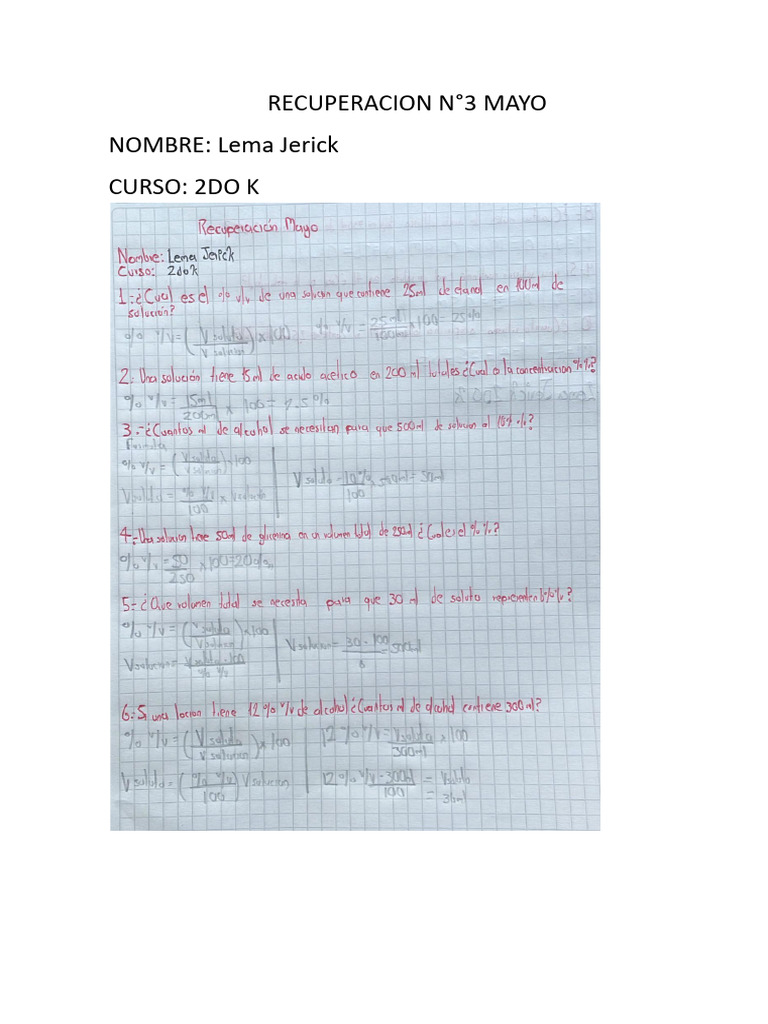 RECUPERACION N°3 MAYO
NOMBRE: Lema Jerick
CURSO: 2DO K
Recuperación Mayo
Nombre: Lema Jerick
Curso: 2do K
1.-¿Cual es el % v/v de una solucion que contiene 25ml de etanol en 100ml de
solución?
% V/V = (V soluto / V solucion) x 100 % V/V = 25ml / 100ml x 100 = 25%
2.- Una solución tiene 15ml de acido acetico en 200 ml totales ¿Cual o la concentracion %%?
% V/V = 15ml / 200ml x 100 = 7.5%
3.-¿Cuantos ml de alcohol se necesitan para que 500ml de solucion al 10% %?
Formula
% V/V = (V soluto / V solucion) x 100
V soluto = % V/V / 100 x V solucion
V soluto = 10% / 100 x 500ml = 50ml
4.- Una solucion tiene 50ml de glicerina en un volumen total de 250ml ¿Cual es el % %?
% V/V = 50 / 250 x 100 = 20%
5.- ¿Que volumen total se necesita para que 30 ml de soluto representen %v?
% V/V = (V soluto / V solucion) x 100
V solucion = V soluto · 100 / % V/V
V solucion = 30 · 100
6.- Si una locion tiene 12% V/V de alcohol ¿Cuantos ml de alcohol contiene 300ml?
% V/V = (V soluto / V solucion) x 100
V soluto = (% V/V / 100) V solucion
12% V/V = V soluto / 300ml x 100
12% V/V · 300ml / 100 = V soluto
= 36ml